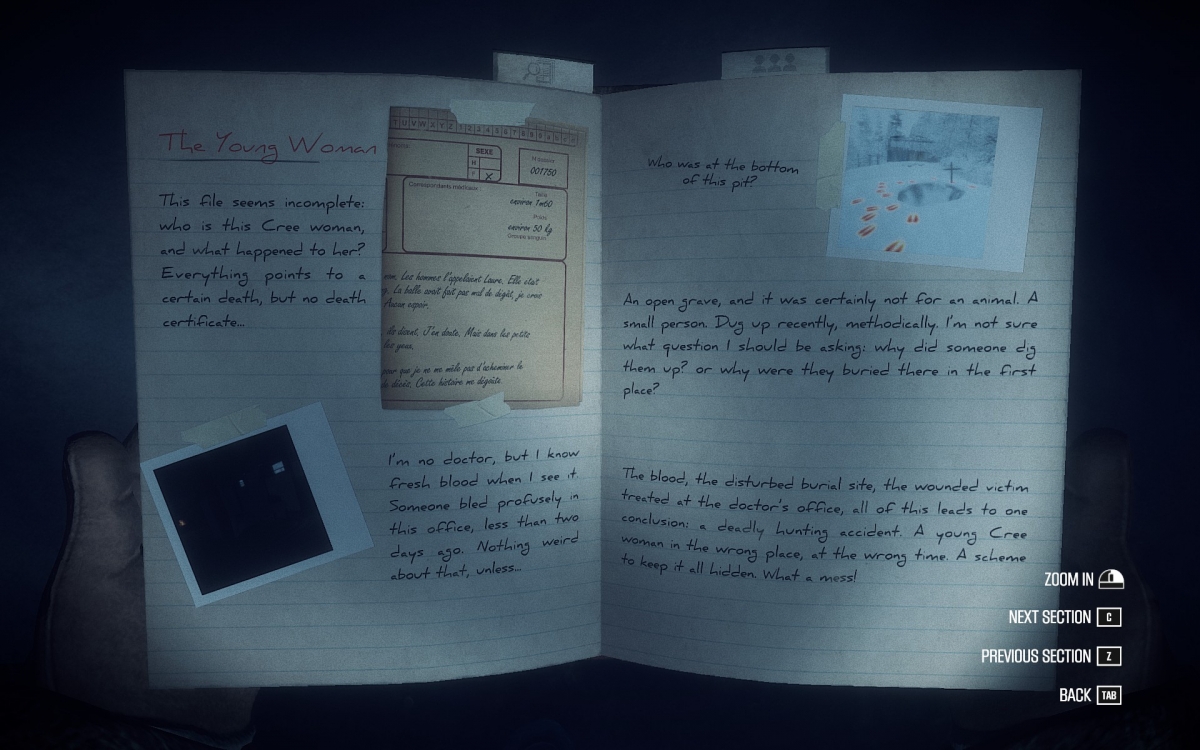 The Young Woman
This file seems incomplete:
who is this Cree woman,
and what happened to her?
Everything points to a
certain death, but no death
certificate...
T U V W X Y Z 1 2 3 4 5 6 7 8 9
SEXE
M
F X
001750
Correspondants médicaux
Taille
environ 1m60
Poids
environ 50 kg
Groupe sanguin
nom. Les hommes l'appelaient Laure. Elle était
La balle avait fait pas mal de dégât, je crois
Aucun espoir.
ils disent. J'en doute. Mais dans les petits
les yeux.
pour que je ne me mêle pas d'acheminer le
de décès. Cette histoire me dégoûte.
I'm no doctor, but I know
fresh blood when I see it.
Someone bled profusely in
this office, less than two
days ago. Nothing weird
about that, unless...
Who was at the bottom
of this pit?
An open grave, and it was certainly not for an animal. A
small person. Dug up recently, methodically. I'm not sure
what question I should be asking: why did someone dig
them up? or why were they buried there in the first
place?
The blood, the disturbed burial site, the wounded victim
treated at the doctor's office, all of this leads to one
conclusion: a deadly hunting accident. A young Cree
woman in the wrong place, at the wrong time. A scheme
to keep it all hidden. What a mess!
ZOOM IN
NEXT SECTION C
PREVIOUS SECTION Z
BACK TAB